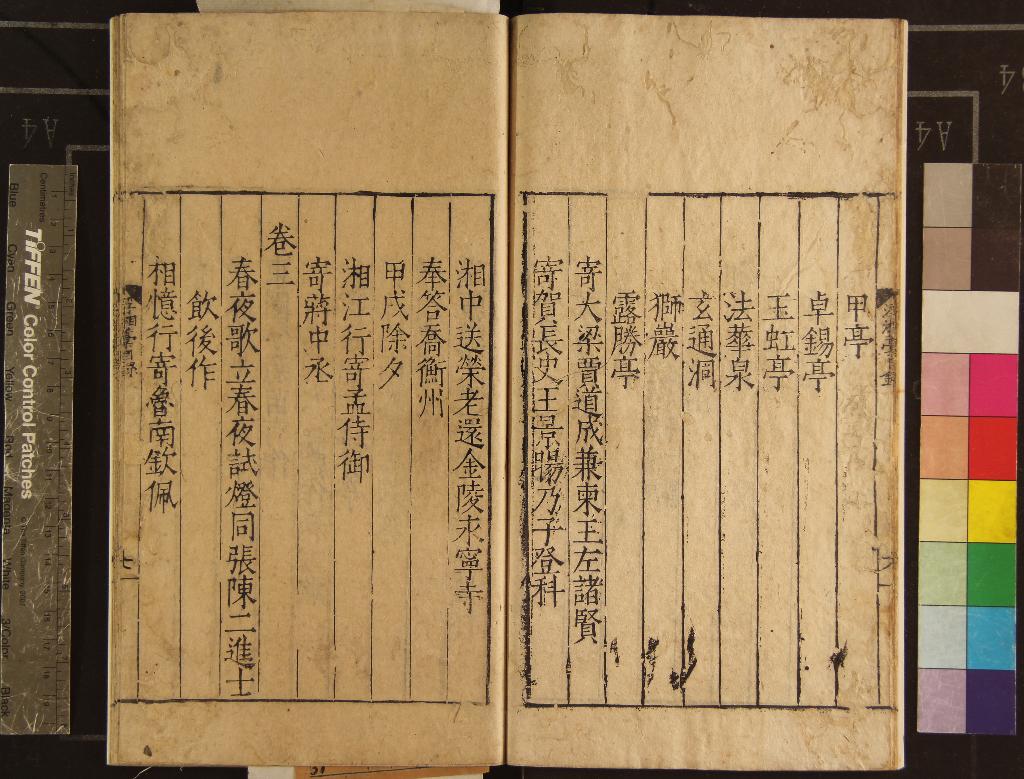 甲亭
卓錫亭
玉虹亭
法華泉
玄通洞
獅巖
露勝亭
寄大梁賈道成兼柬王左諸賢
寄賀長史王景暘乃子登科
湘中送榮老還金陵永寧寺
奉答喬衡州
甲戌除夕
湘江行寄孟侍御
寄蔣中丞
卷三
春夜歌立春夜試燈同張陳二進士
飲後作
相憶行寄魯南欽佩
TIFFEN Color Control Patches
Blue
Cyan
Green
Yellow
Red
Magenta
White
3/Color
Black
Centimetres
A4
A4